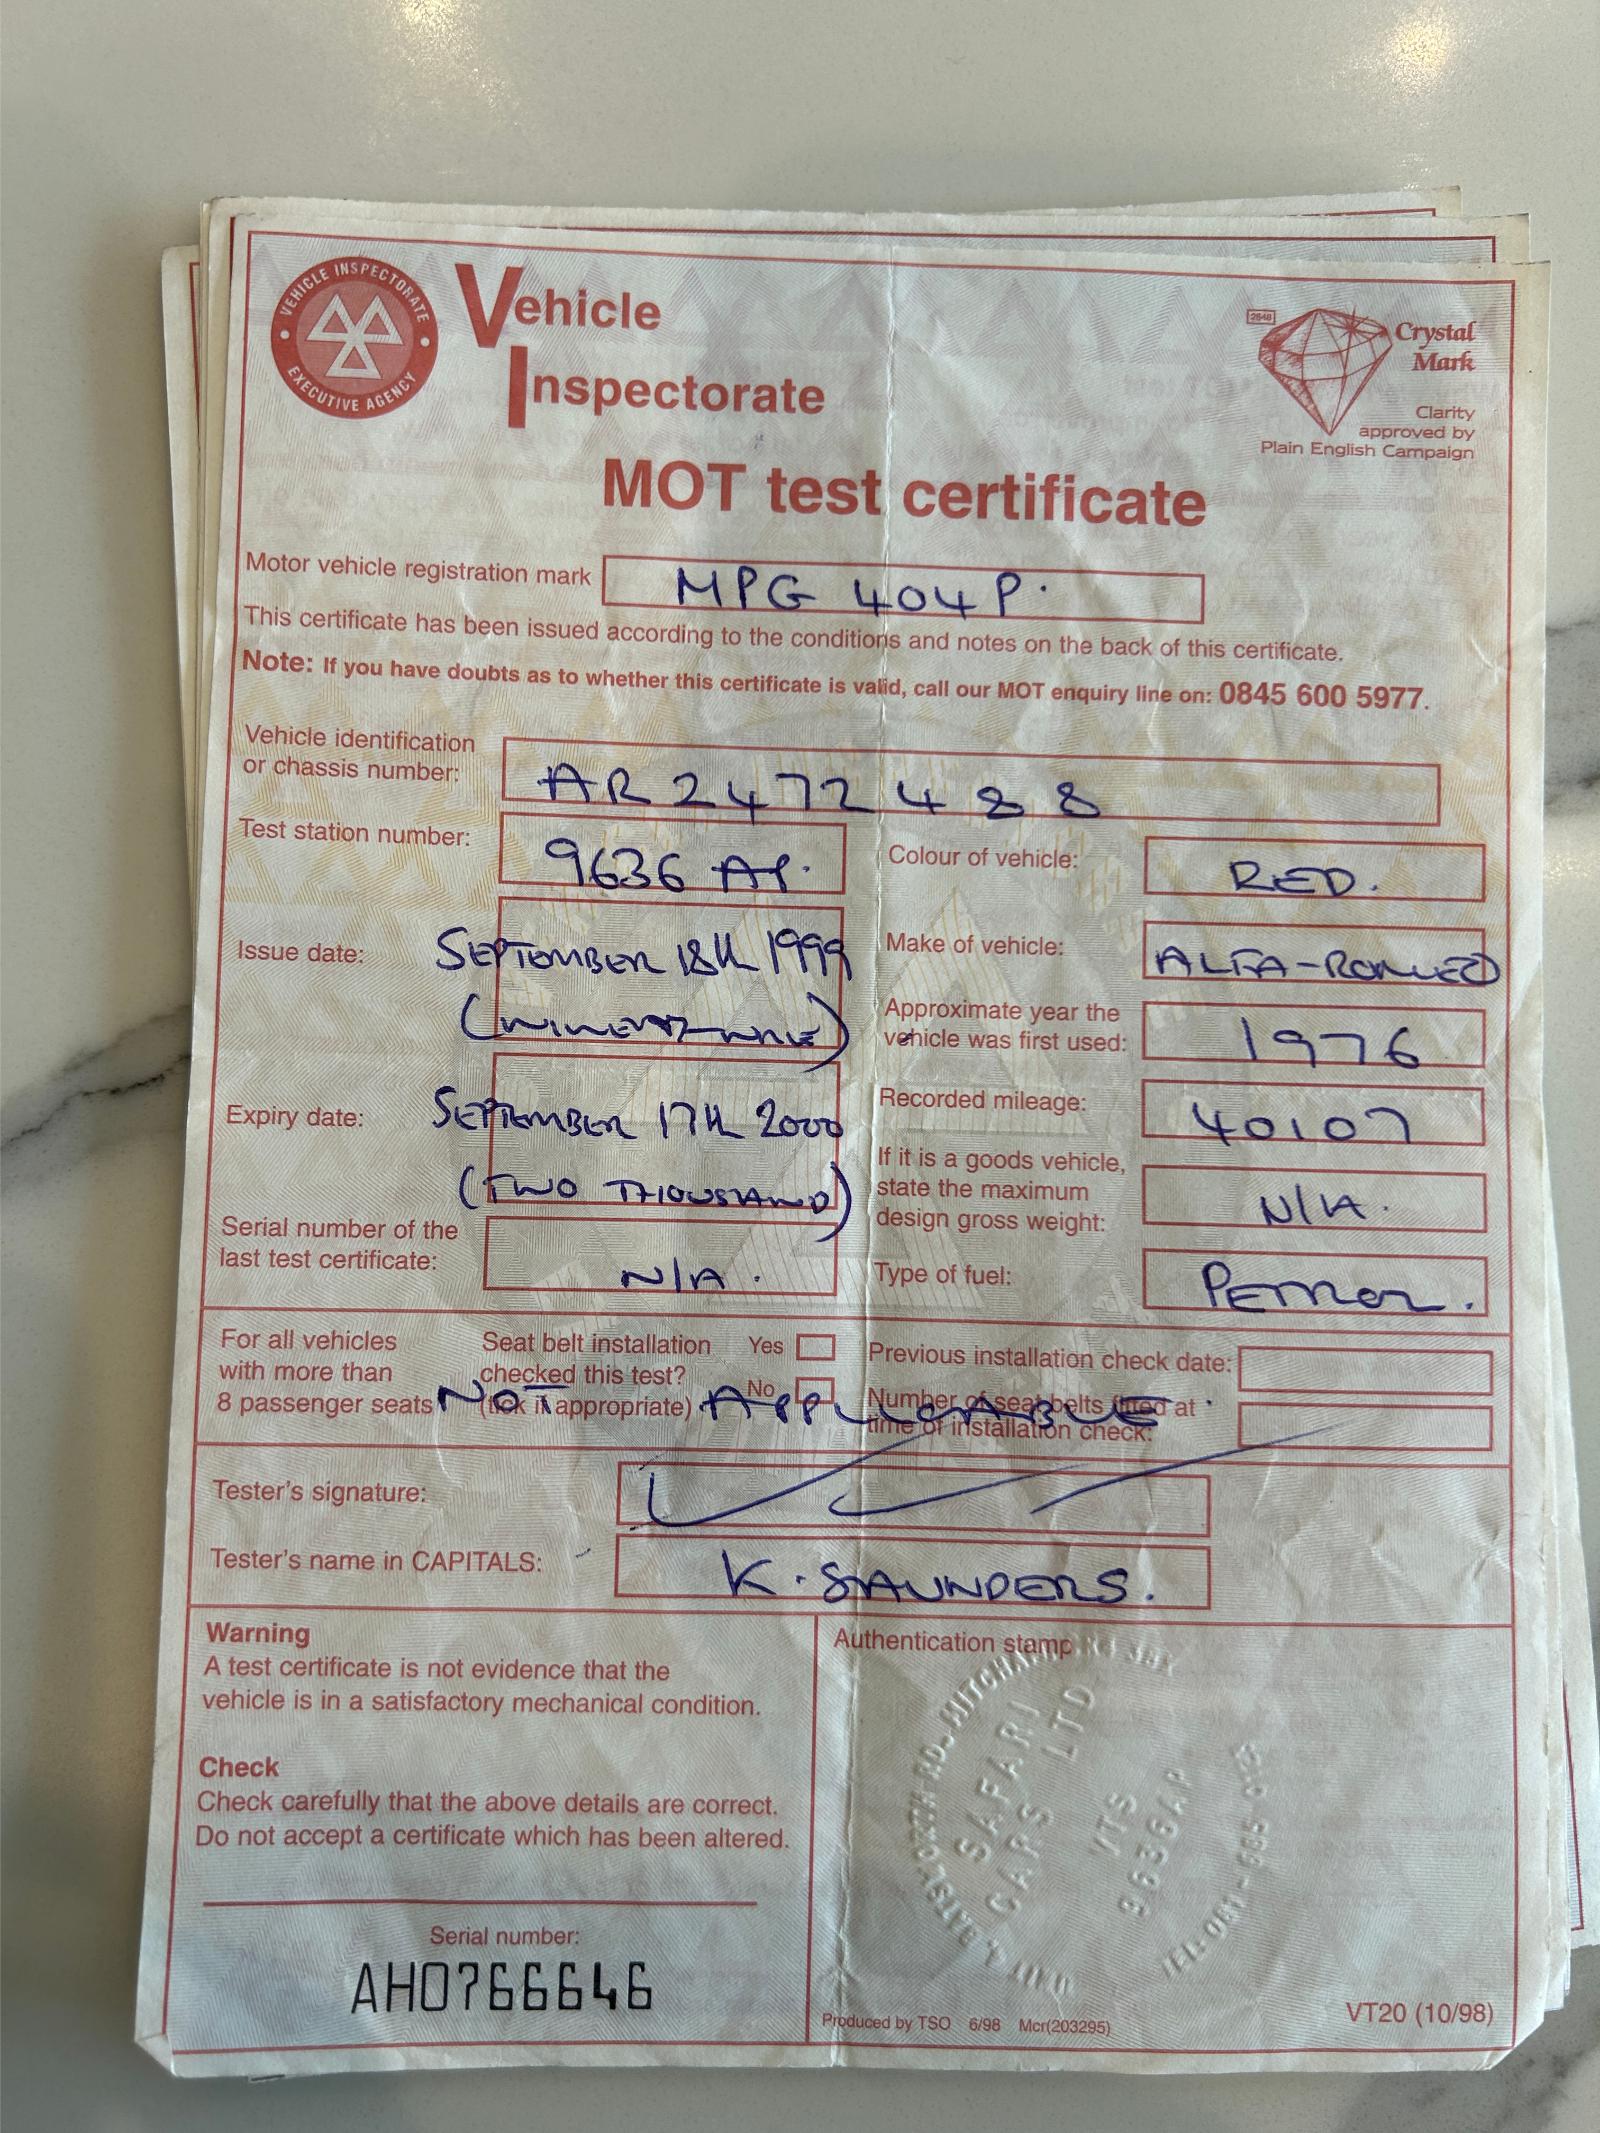 VEHICLE INSPECTORATE
EXECUTIVE AGENCY
Vehicle
Inspectorate
2848
Crystal
Mark
Clarity
approved by
Plain English Campaign
MOT test certificate
Motor vehicle registration mark MPG 404P.
This certificate has been issued according to the conditions and notes on the back of this certificate.
Note: If you have doubts as to whether this certificate is valid, call our MOT enquiry line on: 0845 600 5977.
Vehicle identification
or chassis number: AR 2472488
Test station number: 9636 AP.
Colour of vehicle: RED.
Issue date: SEPTEMBER 18th 1999
Make of vehicle: ALFA-ROMEO
Approximate year the
vehicle was first used: 1976
Expiry date: SEPTEMBER 17th 2000
(TWO THOUSAND)
Recorded mileage: 40107
If it is a goods vehicle,
state the maximum
design gross weight: N/A.
Serial number of the
last test certificate: N/A.
Type of fuel: PETROL.
For all vehicles
with more than
8 passenger seats
Seat belt installation
checked this test?
(tick if appropriate)
Yes
No
Previous installation check date:
Number of seat belts fitted at
time of installation check:
NOT APPLICABLE.
Tester's signature:
Tester's name in CAPITALS: K. SAUNDERS.
Warning
A test certificate is not evidence that the
vehicle is in a satisfactory mechanical condition.
Check
Check carefully that the above details are correct.
Do not accept a certificate which has been altered.
Serial number:
AH0766646
Authentication stamp
SAFARI
CARS LTD
VTS
9636AP
Produced by TSO 6/98 Mcr(203295)
VT20 (10/98)